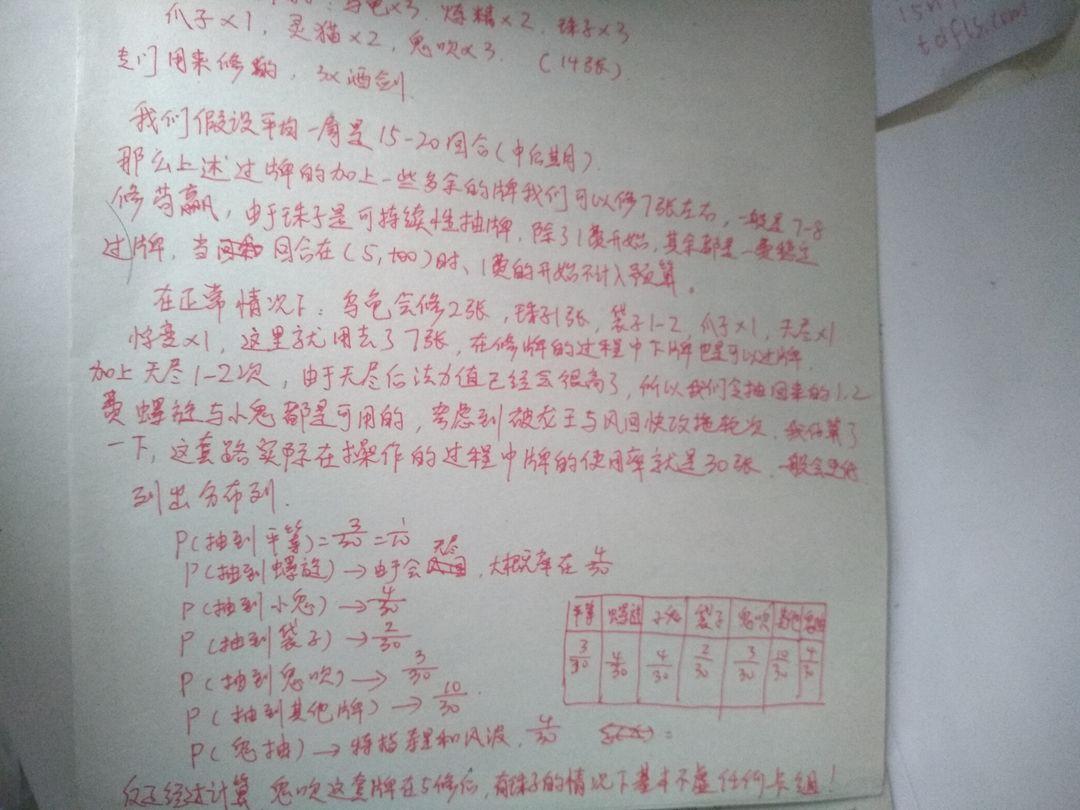 爪子×1, 灵猫×2, 鬼吹×3. (14张)
专门用来修的, 3×酒剑.
我们假设平均一局是15-20回合(中后期).
那么上述过牌的加上一些多余的牌我们可以修7张左右, 一般是7-8
修苟赢, 由于珠子是可持续性抽牌, 除了1费开始, 其余都是一费稳定
过牌, 当回合在(5, +∞)时、1费的开始不计入预算。
在正常情况下: 乌龟会修2张, 珠子1张, 袋子1-2, 爪子×1, 天尽×1
惊变×1, 这里就用去了7张, 在修牌的过程中下牌也是可以过牌.
加上天尽1-2次, 由于天尽后法力值已经会很高了, 所以我们会抽回来的1.2
费螺旋与小鬼都是可用的, 考虑到被龙王与风回快攻拖轮次, 我估算了
一下, 这套路实际在操作的过程中牌的使用率就是30张. 一般会
列出分布列.
P(抽到平等)=3/30=1/10
P(抽到螺旋)→由于会天尽, 大概率在4/30
P(抽到小鬼)→4/30
P(抽到袋子)→2/30
P(抽到鬼吹)→3/30
P(抽到其他牌)→10/30.
P(鬼抽)→特指 和风波, 4/30
平等 螺旋 小鬼 袋子 鬼吹 其他
3/30 4/30 4/30 2/30 3/30 10/30 4/30
经过计算, 鬼吹这套牌在5修后, 有珠子的情况下基本不虚任何卡组!